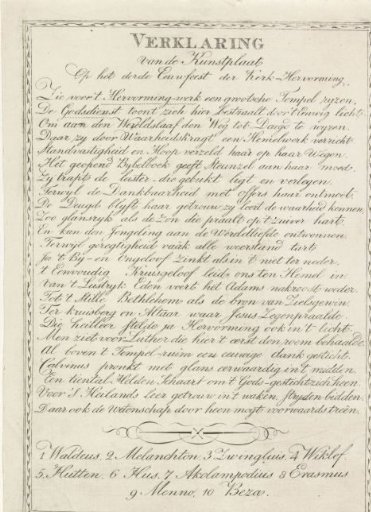 VERKLARING
van de Kunstplaat
Op het derde Eeuwfeest der Kerk-Hervorming.
Zie voor 't Hervorming-werk een grootsche Tempel ryzen,
De Godsdienst toont zich hier bestraald door Hemelsch licht
Om aan den Wereldslaaf den Weg tot Laage te wyzen
Daar zy door Waarheidskragt een Hemelwerk verricht
Standvastigheid en Hoop verzeld haar op haar Wegen
Het geopend Bybelboek geeft steunzel aan haar moed
Zy trapt de laster die gebukt legt en verlegen
Terwyl de Dankbaarheid met offers haar ontmoet
De Deugd blyft haar getrouw zy doed de waarheid
Zoo glansryk als de Zon die praalt op 't zuiver hart
En kan den Jongeling aan de Wereldliefde
Terwyl geregtigheid vaak alle weerstand tart
Ja 't By- en Ongeloof zinkt als in 't niet ter neder
't Eenvoudig Kruisgeloof leid ons ten Hemel in
Van 't Lustryk Eden voert het Adams nakroost weder
Tot 't Bethlehem als de bron van Zielsgewin
Ter kruisberg en Altaar waar Jesus Zegenpraalde
Die heilleer stelde ja Hervorming ook in 't licht
Men ziet voor Luther die hier 't eerst den roem behaalde
Al boven 't Tempel-ruim een eeuwige dank gesticht
Calvinus pronkt met glans eerwaardig in 't midden
Een tiental Helden schaart om 't Gods-gesticht zich heen
Voor 's Heilands leer getrouw in 't waken, stryden bidden
Daar ook de Wetenschap door hien mogt voorwaards treên.
1 Waldeus, 2 Melanchton, 3 Zwinglius, 4 Wiklef
5 Hutten, 6 Hus, 7 Akolampodius 8 Erasmus
9 Menno, 10 Beza.